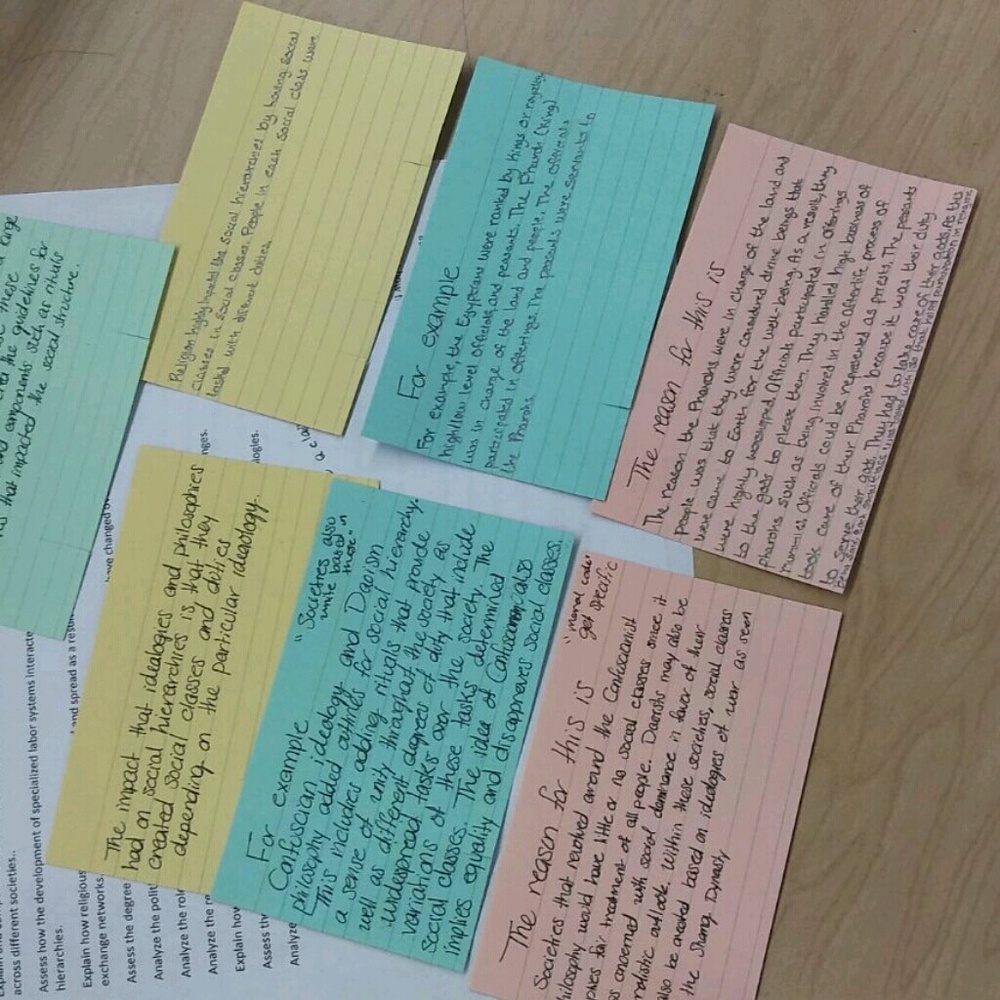 large
these
the guidelines for
components such as rituals
that impacted the social structure.
Religion highly impacted the social hierarchies by having social
classes in social classes. People in each social class were
tasked with different duties.
For example
For example, the Egyptians were ranked by kings or royalty,
high/low level officials, and peasants. The Pharoh (king)
was in charge of the land and people. The officials
participated in offertings. The peasants were servants to
the Pharohs
The reason for this is
The reason the Pharohs were in charge of the land and
people was that they were considered divine beings that
were came to Earth for the well-being. As a result, they
were highly worshipped. Officials participated in offertings
to the gods to please them. They handled high business of
Pharohs such as being involved in the afterlife process of
mummies. Officials could be represented as priests. The peasants
took care of their Pharohs because it was their duty
to serve their gods. They had to take care of their gods. As this
participation in religion
The impact that idealogies and Philosophies
had on social hierarchies is that they
created social classes and duties
depending on the particular ideaology.
"Societies also
unite based
more"
For example
Confuscian ideology and Daoism
Philosophy added outlines for social hierarchy.
This includes adding rituals that provide
a sense of unity throughout the society as
well as different degrees of duty that include
widespread tasks over the society. The
variations of these tasks determined
social classes. The idea of also
implies equality and disapproves social classes.
"moral code"
get specific
The reason for this is
Societies that revolved around the Confuscianist
hilosophy would have little or no social classes since it
for treatment of all people. Daoists may also be
concerned with social dominance in favor of their
outlook. Within these societies, social classes
also be created based on idealogies of war as seen
the Shang Dynasty.
across different societies..
Assess how the development of specialized labor systems interacte
hierarchies.
Explain how religious
exchange networks.
Assess the degree
Analyze the polit
Analyze the rol
Analyze the r
Explain how
Assess the
Analyze
and spread as a resu
ve changed o
nges.
logies.